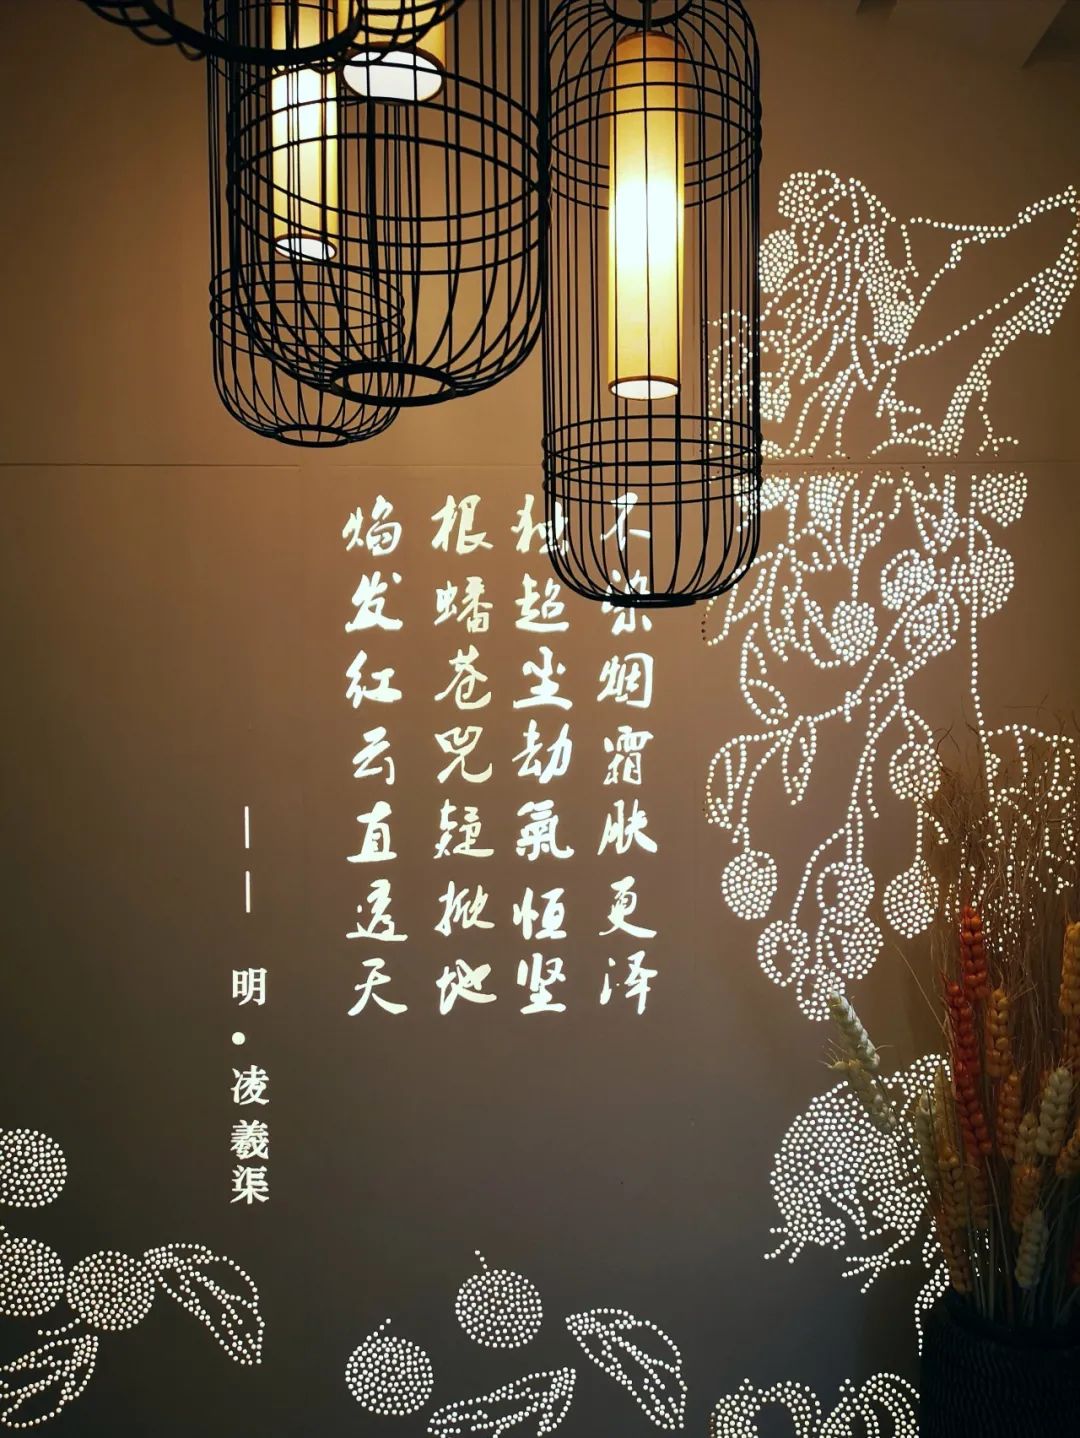 不染烟霜肤更泽
独超尘劫氣恒坚
根蟠苍兕疑掀地
焰发红云直透天
——明•凌羲渠